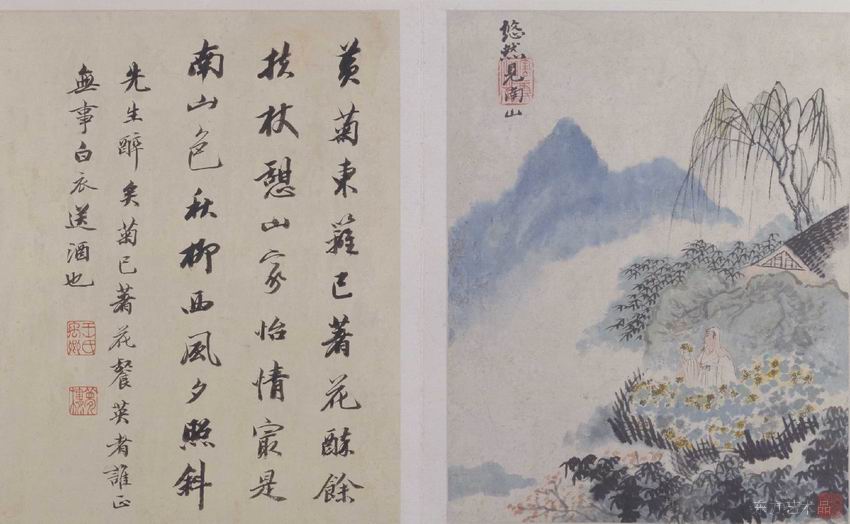 悠然見南山
黃菊東籬已著花酥餘
扶杖憩山家怡情寂是
南山色秋柳西風夕照斜
先生醉矣菊已著花餐英者誰正
無事白衣送酒也
东方艺术品